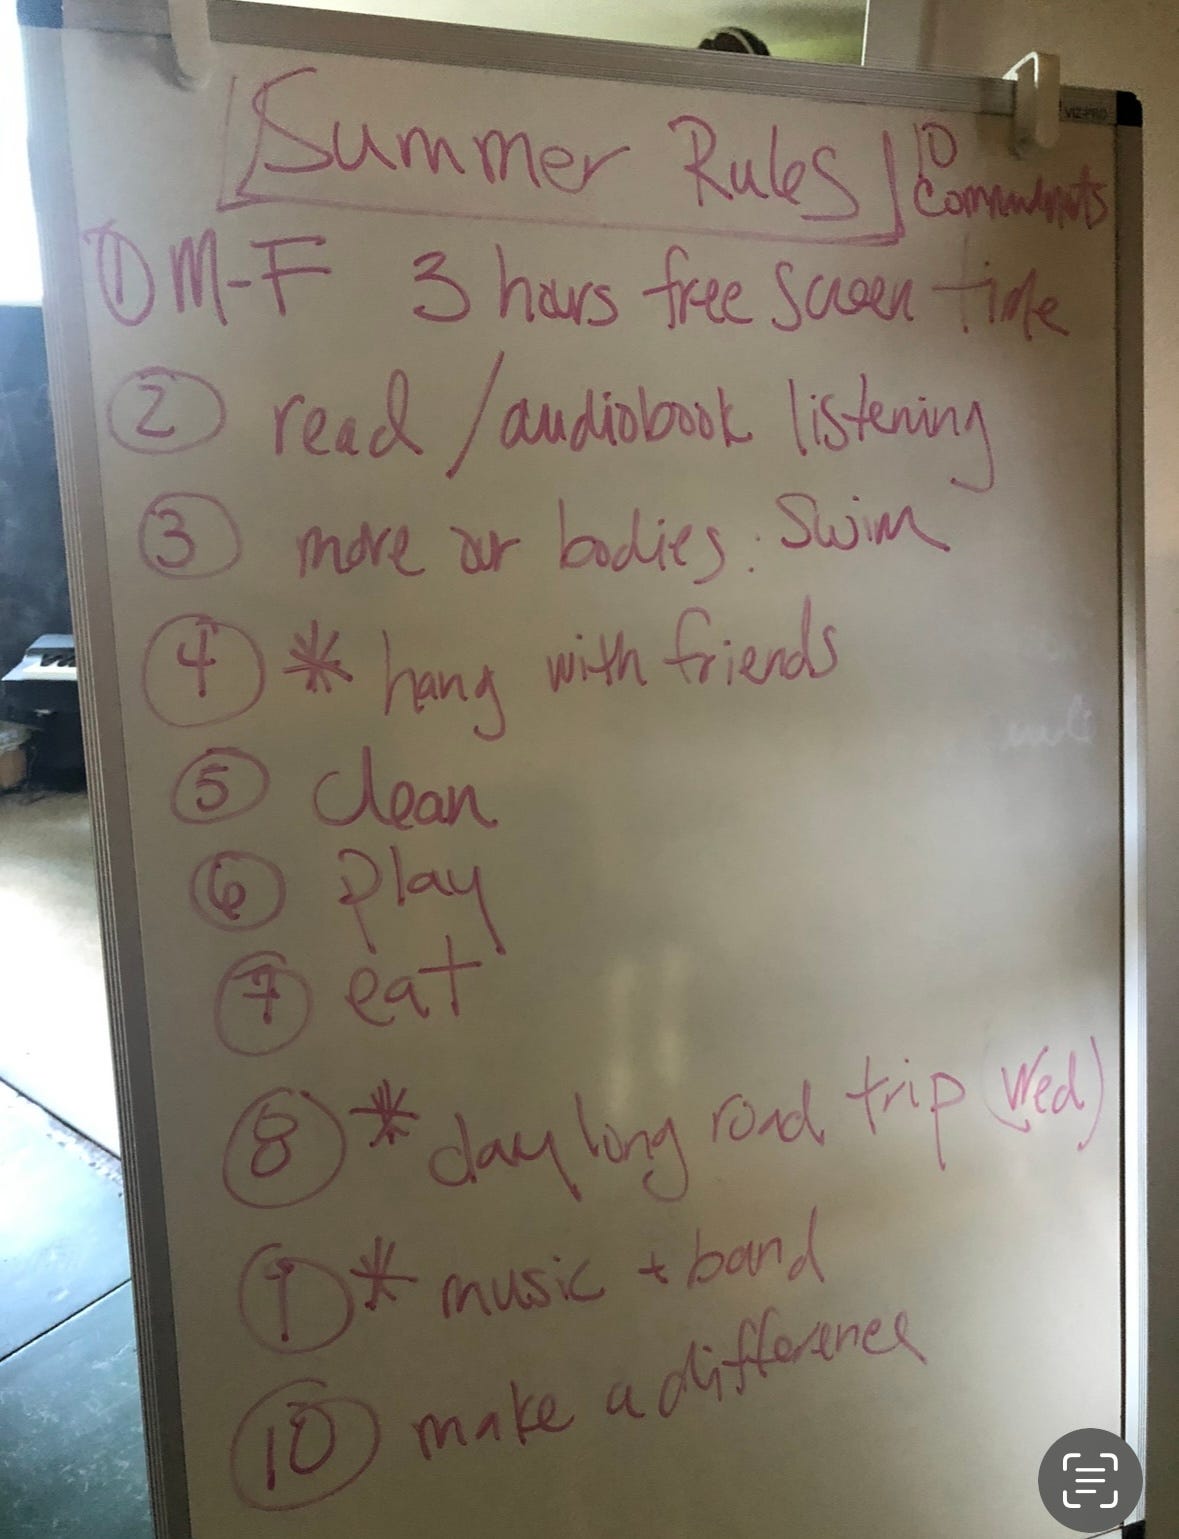 Summer Rules
10 Commndmts
① M-F 3 hours free screen time
② read / audiobook listening
③ move our bodies: Swim
④ * hang with friends
⑤ Clean
⑥ play
⑦ eat
⑧ * day long road trip (Wed)
⑨ * music + band
⑩ make a difference
VIZ-PRO